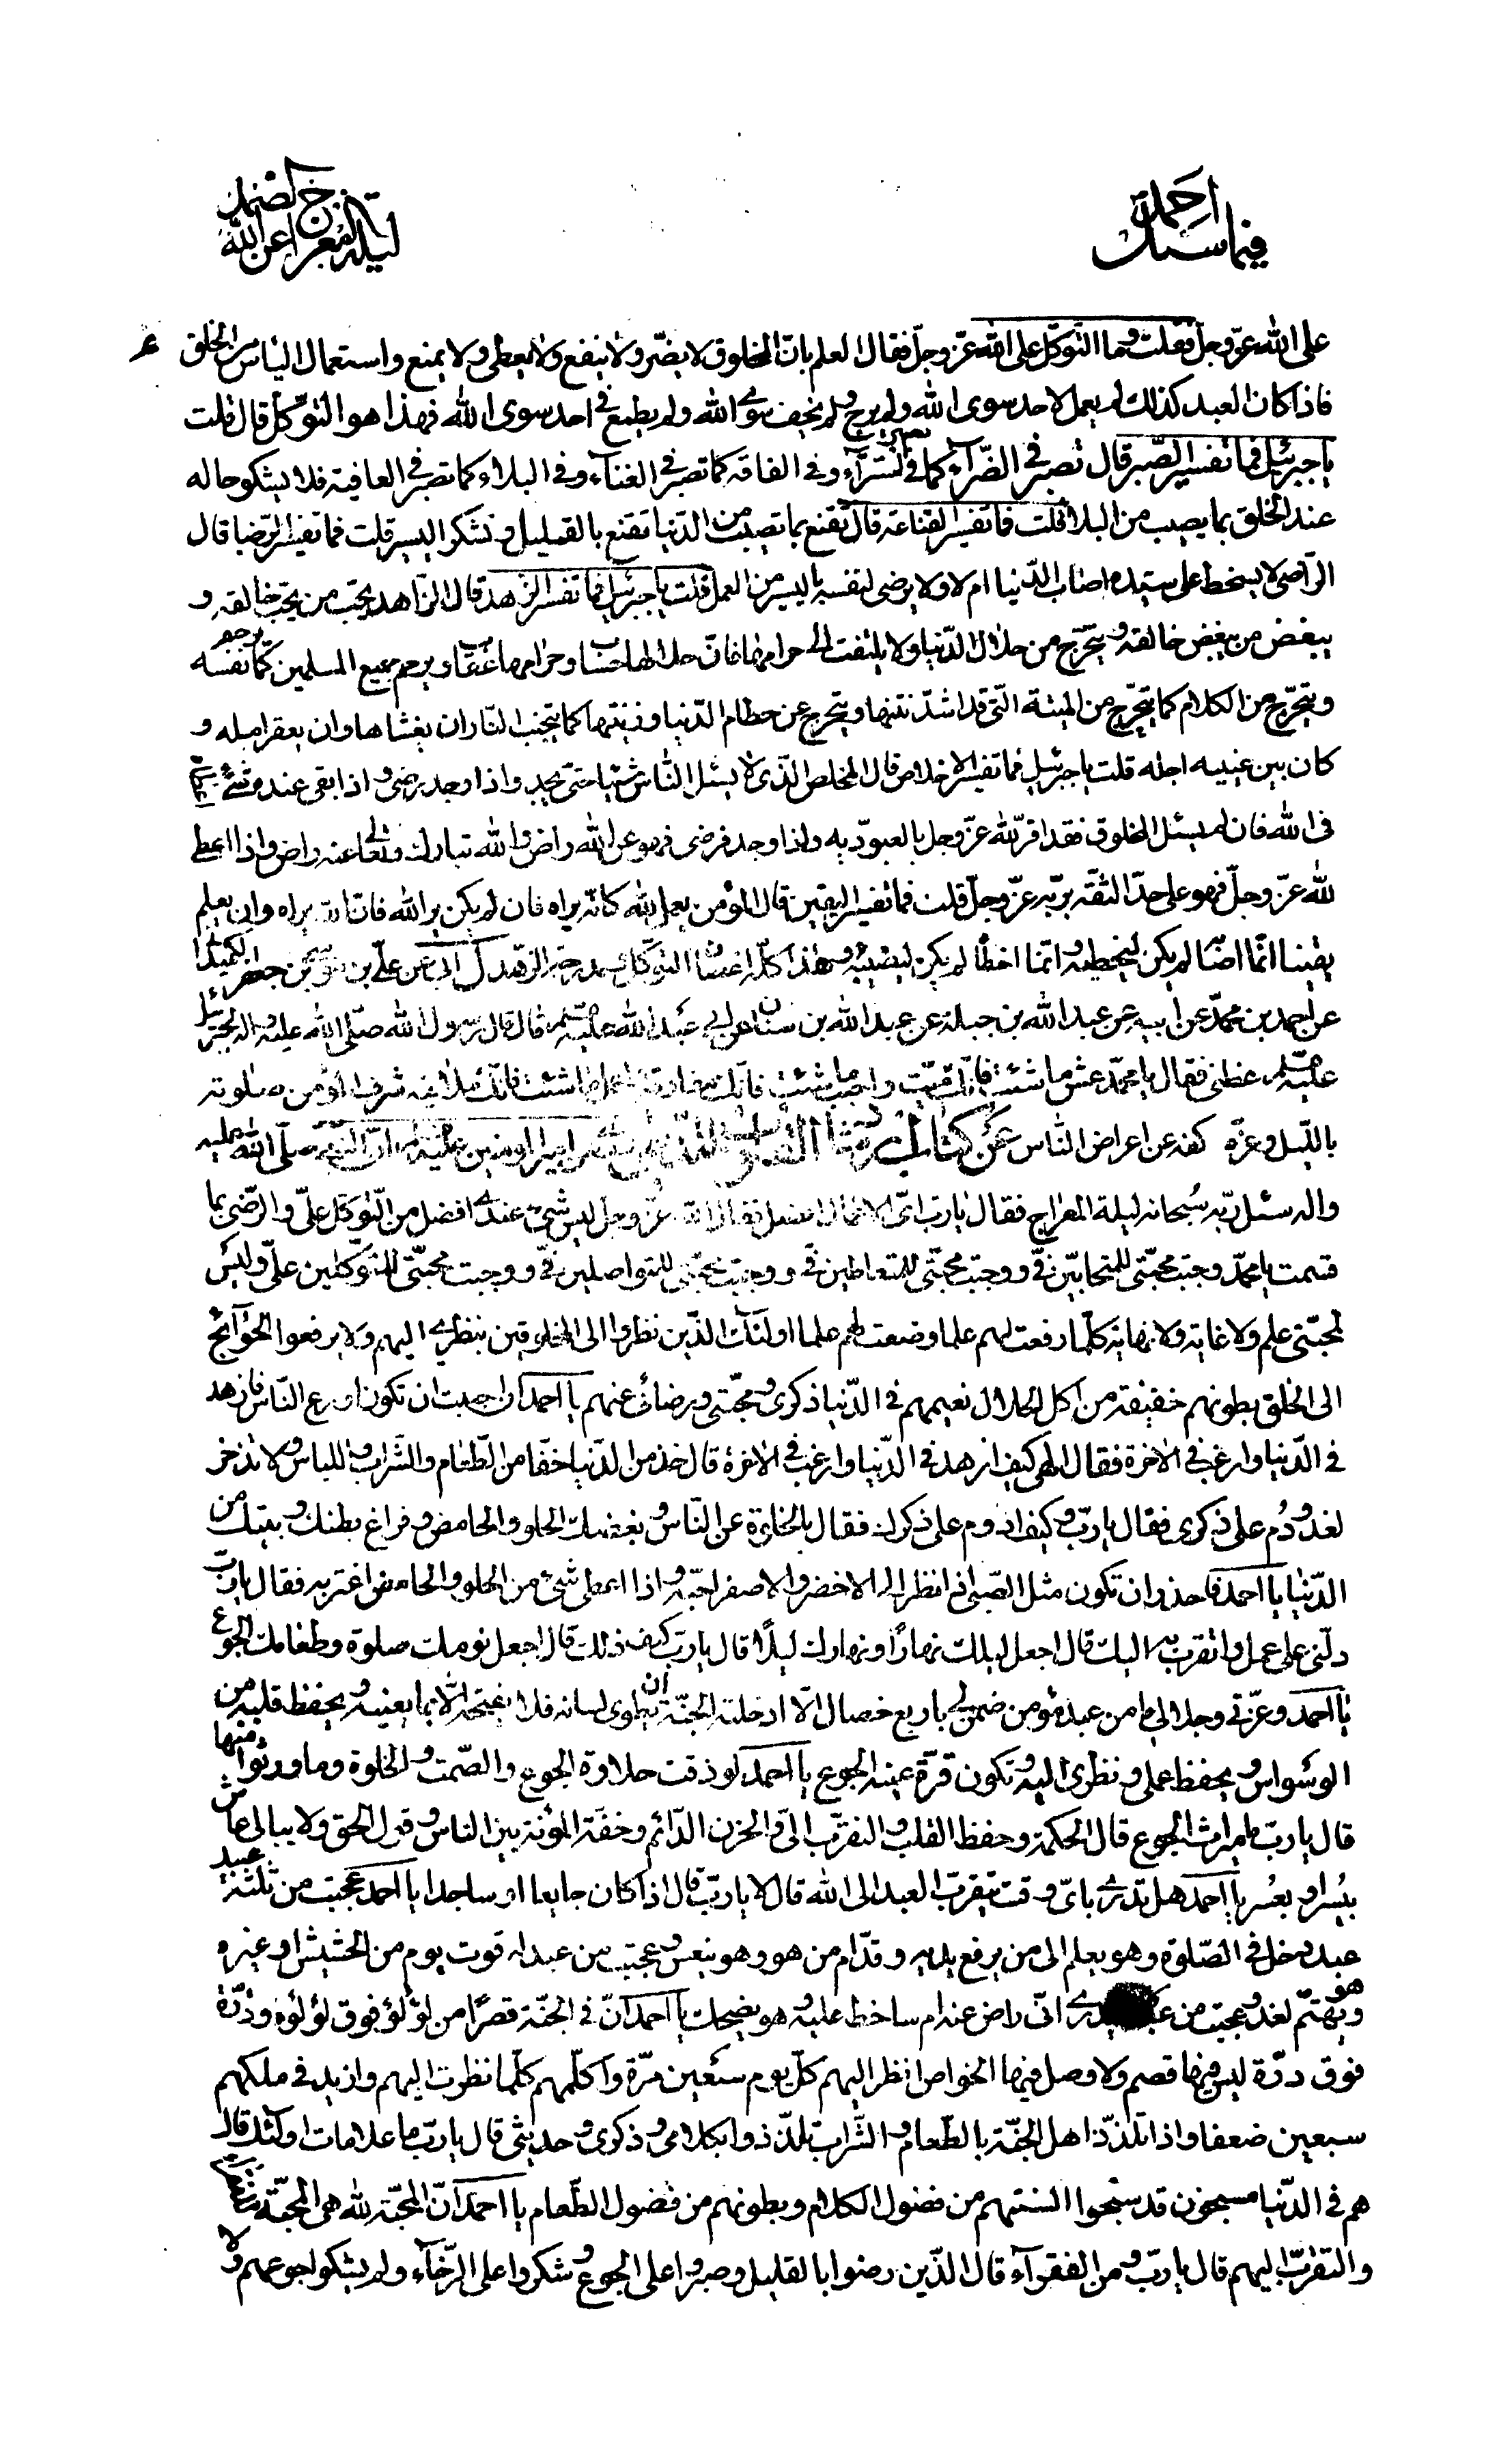 احمد
فيما سئل
ليلة المعراج عن الله
على الله عزّ وجلّ فقلت وما التّوكّل على الله عزّ وجلّ فقال العلم بانّ المخلوق لا يضرّ ولا ينفع ولا يعطى ولا يمنع واستعمال الياس من الخلق
فاذا كان العبد كذلك لم يعمل لاحد سوى الله ولم يرج ولم يخف سوى الله ولم يطمع فى احد سوى الله فهذا هو التوكّل قال قلت
يا جبرئيل فما تفسير الصّبر قال تصبر فى الضّرآء كما فى السّرّآء وفى الفاقه كما تصبر فى الغناء وفى البلاء كما تصبر فى العافية فلا يشكو حاله
عند الخلق بما يصيب من البلا قلت فما تفسير القناعة قال تقنع بما تصيب من الدّنيا تقنع بالقليل وتشكر اليسير قلت فما تفسير الرّضا قال
الرّاضى لا يسخط على سيّده اصاب الدّنيا ام لا ولا يرضى لنفسه باليسير من العمل قلت يا جبرئيل فما تفسير الزّهد قال الزّاهد يحبّ من يحبّ خالقه و
يبغض من يبغض خالقه ويتحرّج من حلال الدّنيا ولا يلتفت الى حرامها فانّ حلالها حساب وحرامها عقاب ويرحم جميع المسلمين كما يرحم نفسه
ويتحرّج من الكلام كما يتحرّج من الميتة الّتى قد اشتدّ نتنها ويتحرج عن حطام الدّنيا وزينتها كما يتجنب النّار ان يغشاها وان يقصر امله و
كان بين عينيه اجله قلت يا جبرئيل فما تفسير الاخلاص قال المخلص الّذى لا يسئل النّاس شيئا حتّى يجد واذا وجد رضى واذا بقى عنده شئ
فى الله فان لم يسئل المخلوق فقد اقرّ لله عزّ وجل بالعبوديه واذا وجد فرضى فهو عن الله راض والله تبارك وتعالى عنه راض واذا اعطى
لله عزّ وجلّ فهو على حدّ الثقة بربّه عزّ وجلّ قلت فما تفسير اليقين قال المؤمن يعمل لله كانّه يراه فان لم يكن يرا الله فانّ الله يراه وان يعلم
يقينا انّ ما اصابه لم يكن ليخطيه وانّ ما اخطأه لم يكن ليصيبه وهذا كلّه اغصان التوكّل ومدرجة الزّهد ل ابى عن علىّ بن موسى بن جعفر الكميدانى
عن احمد بن محمّد عن ابيه عن عبد الله بن جبلة عن عبد الله بن سنان عن ابى عبد الله عليه السلم قال قال رسول الله صلّى الله عليه واله لجبرئيل
عليه السّلم عظنى فقال يا محمّد عش ما شئت فانّك ميّت واحبب ما شئت فانّك مفارقه واعمل ما شئت فانّك ملاقيه شرف المؤمن صلوته
بالليل وعزّه كفه عن اعراض النّاس عن كتاب ارشاد القلوب للدّيلمى امير المومنين عليه انّ النبىّ صلّى الله عليه
واله سئل ربّه سبحانه ليلة المعراج فقال يا ربّ اىّ الاعمال افضل فقال الله عزّ وجل ليس شئ عندى افضل من التّوكّل علىّ والرّضى بما
قسمت يا محمّد وجبت محبّتى للمتحابّين فىّ ووجبت محبّتى للمتعاطفين فىّ ووجبت محبّتى للمتواصلين فىّ ووجبت محبّتى للمتوكّلين علىّ وليس
لمحبّتى علم ولا غاية ولا نهاية كلّما رفعت لهم علما وضعت لهم علما اولئك الّذين نظروا الى المخلوقين بنظرى اليهم ولا يرفعوا الحوآئج
الى الخلق بطونهم خفيفة من اكل الحلال نعيمهم فى الدّنيا ذكرى ومحبّتى ورضائى عنهم يا احمد ان احببت ان تكون اورع النّاس فازهد
فى الدّنيا وارغب فى الاخرة فقال الهى كيف ازهد فى الدّنيا وارغب فى الاخرة قال خذ من الدّنيا خفّا من الطّعام والشّراب واللباس ولا تدّخر
لغد ودُم على ذكرى فقال يا ربّ وكيف ادوم على ذكرك فقال بالخلوة عن النّاس وبغضك الحلو والحامض وفراغ بطنك وبيتك من
الدّنيا يا احمد فاحذر ان تكون مثل الصّبىّ اذا نظر الى الاخضر والاصفر احبّه واذا اعطى شئ من الحلو والحامض اغتر به فقال يا ربّ
دلّنى على عمل اتقرّب به اليك قال اجعل ليلك نهارًا ونهارك ليلًا قال يا ربّ كيف ذلك قال اجعل نومك صلوة وطعامك الجوع
يا احمد وعزّتى وجلالى ما من عبد مؤمن ضمن لى باربع خصال الّا ادخلته الجنّة ان يطوى لسانه فلا يفتحه الّا بما يعنيه ويحفظ قلبه من
الوسواس ويحفظ عملى ونظرى اليه وتكون قرّة عينه الجوع يا احمد لو ذقت حلاوة الجوع والصّمت والخلوة وما ورثوا منها
قال يا ربّ ما ميراث الجوع قال الحكمة وحفظ القلب والتقرّب الىّ والحزن الدّائم وخفّة المؤنة بين الناس وقول الحق ولا يبالى عاش
بيُسر او بعُسر يا احمد هل تدرى باىّ وقت يتقرّب العبد الى الله قال لا يا ربّ قال اذا كان جايعا او ساجدا يا احمد عجبت من ثلثة عبيد
عبد دخل فى الصّلوة وهو يعلم الى من يرفع يديه وقدّام من هو وهو ينعس وعجبت من عبد له قوت يوم من الحشيش او غيره
وهو يهتمّ لغد وعجبت من عبد يدرى انّى راض عنه ام ساخط عليه وهو يضحك يا احمد انّ فى الجنّة قصرًا من لؤلؤ فوق لؤلؤة ودُرّة
فوق درّة ليس فيها قصم ولا وصل فيها الخواص انظر اليهم كلّ يوم سبعين مرّة واكلّمهم كلّما نظرت اليهم وازيد فى ملكهم
سبعين ضعفا واذا تلذّذ اهل الجنّة بالطّعام والشّراب تلذّذوا بكلامى وذكرى وحديثى قال يا ربّ ما علامات اولئك قال
هم فى الدّنيا مسجون قد سجنوا السنتهم من فضول الكلام وبطونهم من فضول الطّعام يا احمد انّ المحبّة لله هى المحبّة
والتقرّب اليهم قال يا ربّ ومن الفقرآء قال الّذين رضوا بالقليل وصبروا على الجوع وشكروا على الرّخآء ولم يشكوا جوعهم ولا